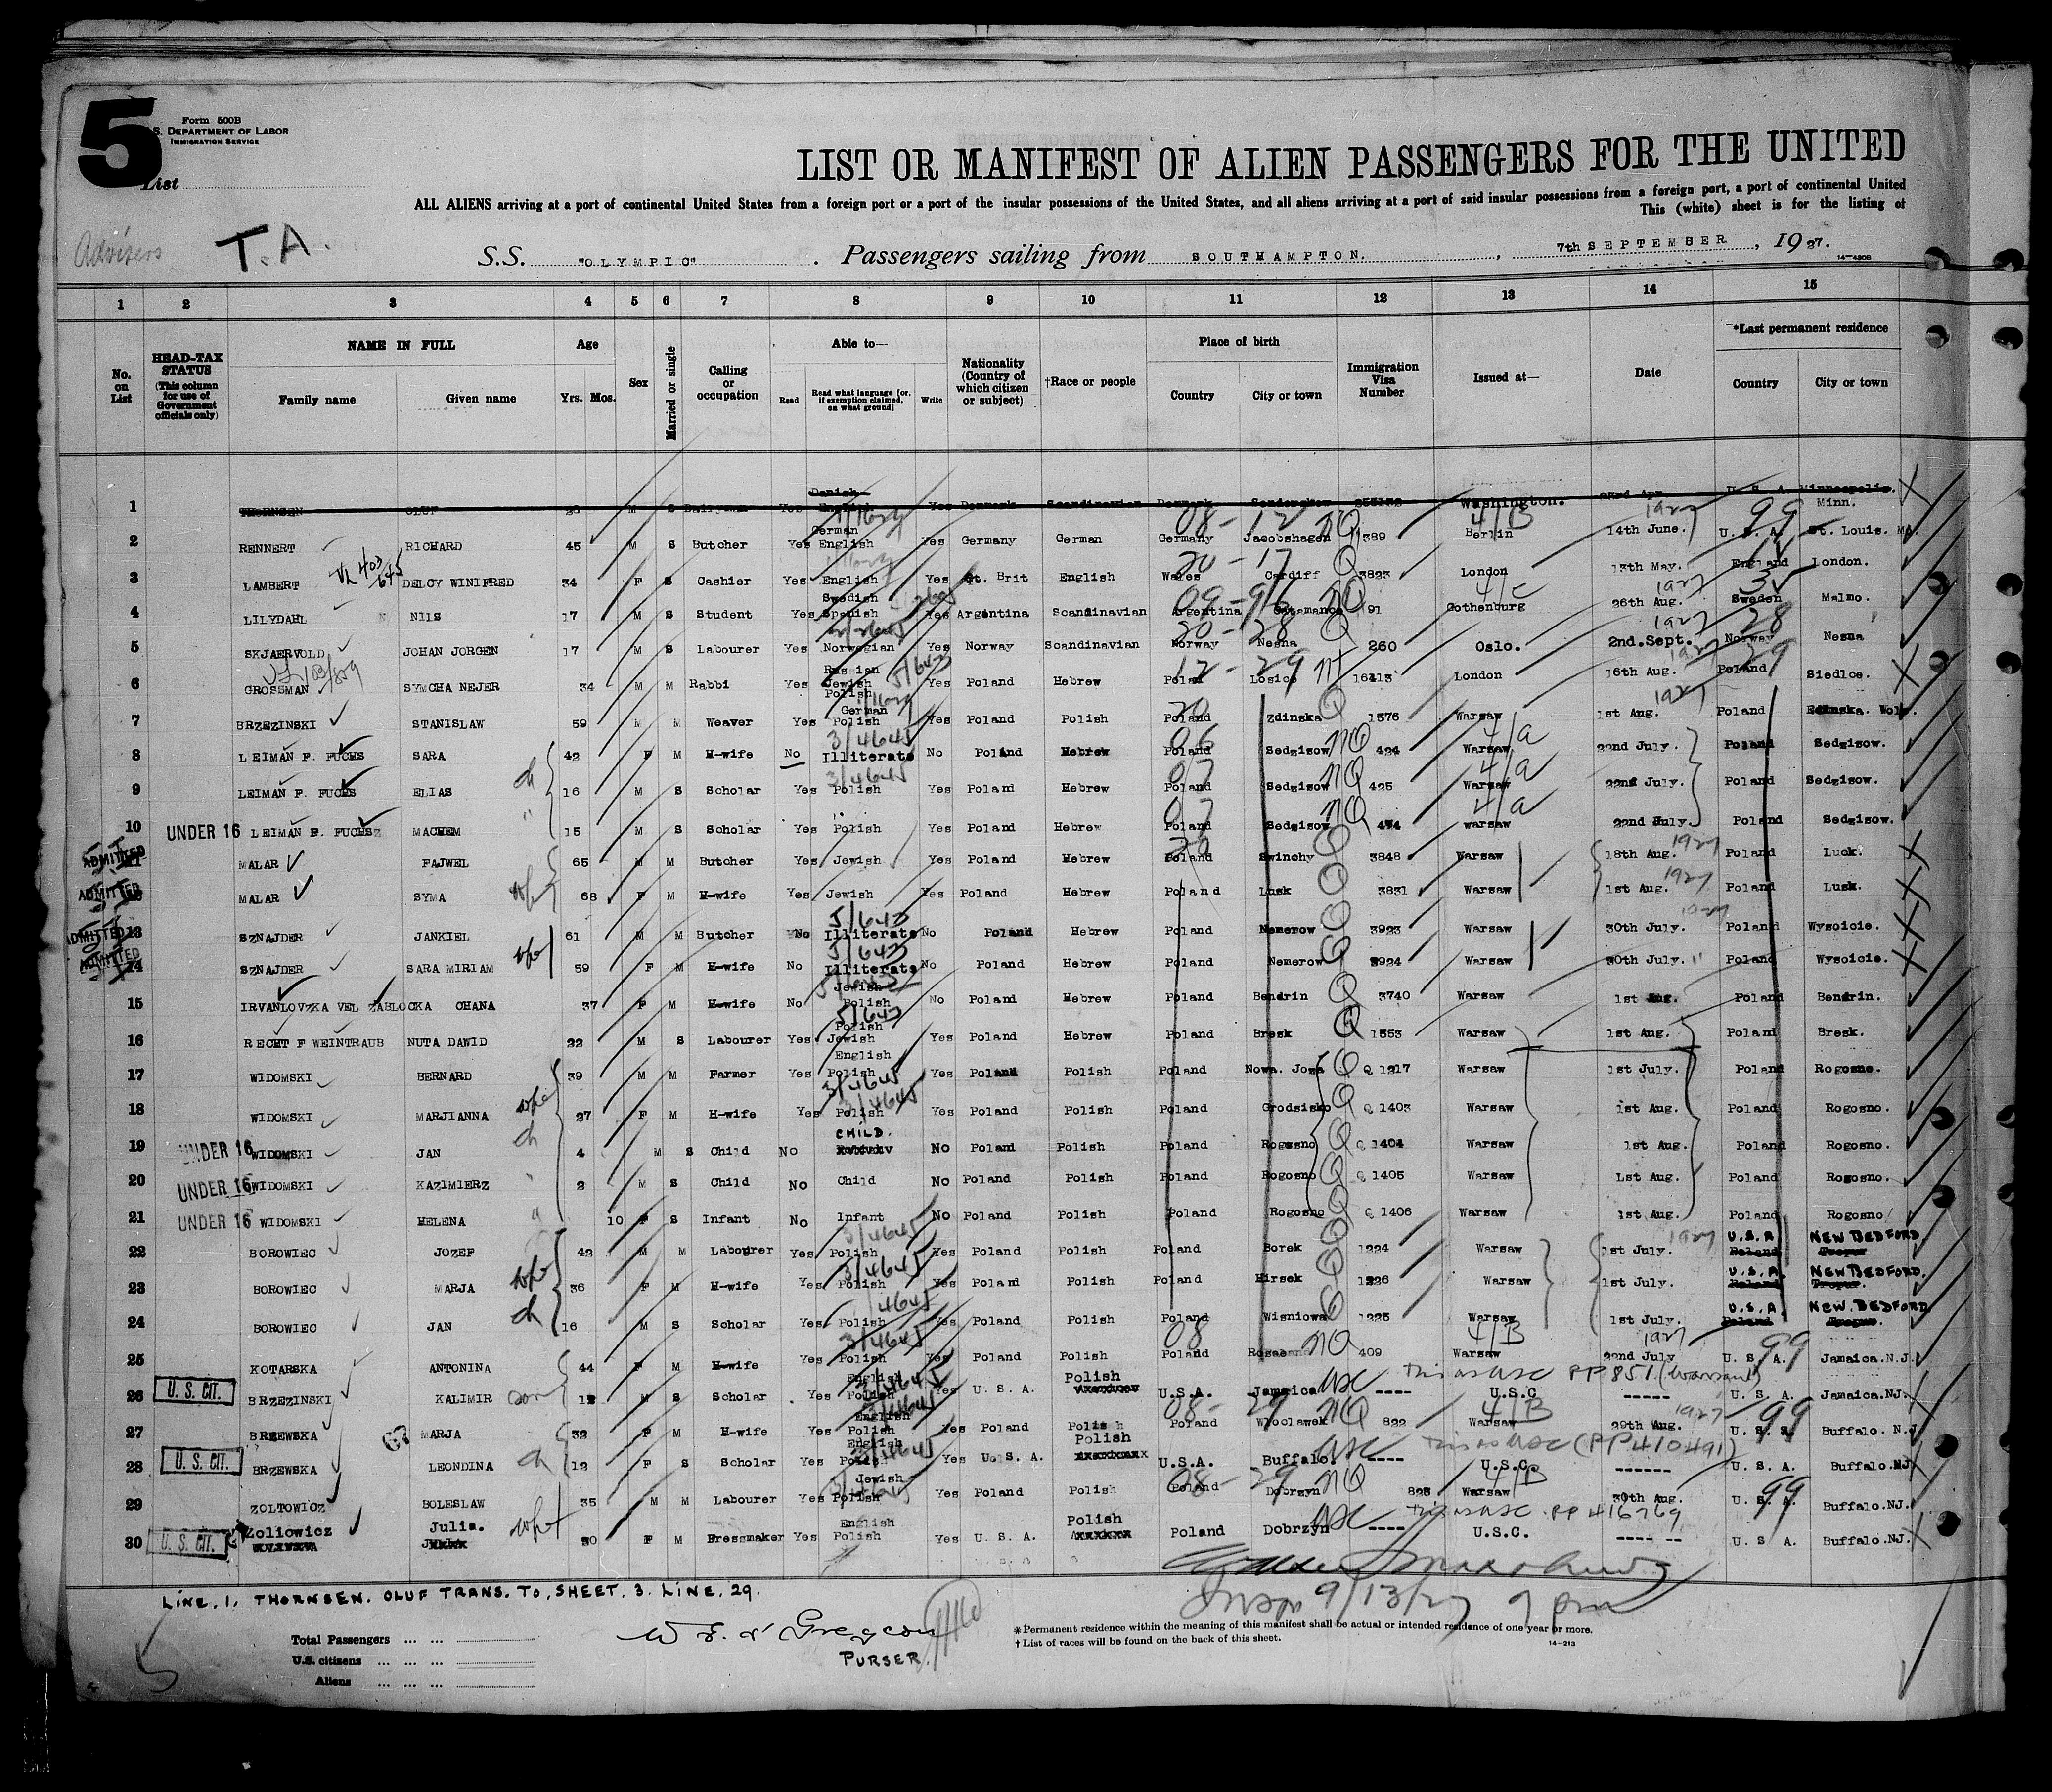 5
Form 500B
S. DEPARTMENT OF LABOR
IMMIGRATION SERVICE
List
LIST OR MANIFEST OF ALIEN PASSENGERS FOR THE UNITED
ALL ALIENS arriving at a port of continental United States from a foreign port or a port of the insular possessions of the United States, and all aliens arriving at a port of said insular possessions from a foreign port, a port of continental United
This (white) sheet is for the listing of
Advisers T.A.
S.S. "OLYMPIC" . Passengers sailing from SOUTHAMPTON. , 7th SEPTEMBER , 1927.
14-430B
1 2 3 4 5 6 7 8 9 10 11 12 13 14 15
No. on List
HEAD-TAX STATUS (This column for use of Government officials only)
NAME IN FULL Family name Given name
Age Yrs. Mos.
Sex
Married or single
Calling or occupation
Able to— Read Read what language [or, if exemption claimed, on what ground] Write
Nationality (Country of which citizen or subject)
†Race or people
Place of birth Country City or town
Immigration Visa Number
Issued at—
Date
*Last permanent residence Country City or town
1 THORNSEN OLUF 23 M S Dairyman Yes Danish English Yes Denmark Scandinavian Denmark Washington. 23rd Apr. U.S.A. Minneapolis. Minn.
2 RENNERT RICHARD 45 M S Butcher Yes German English Yes Germany German Germany Jacobshagen 389 Berlin 14th June. 1927 U.S.A. St. Louis. MO.
3 LAMBERT DELCY WINIFRED 34 F S Cashier Yes English Yes Gt. Brit English Wales Cardiff 3823 London 13th May. England London.
4 LILYDAHL NILS 17 M S Student Yes Swedish Spanish Yes Argentina Scandinavian Argentina Catamanca 91 Gothenburg 26th Aug. 1927 Sweden Malmo.
5 SKJAERVOLD JOHAN JORGEN 17 M S Labourer Yes Norwegian Yes Norway Scandinavian Norway Nesna 260 Oslo. 2nd.Sept. 1927 Norway Nesna
6 GROSSMAN SYMCHA NEJER 34 M M Rabbi Yes Russian Jewish Polish Yes Poland Hebrew Poland Losice 16413 London 16th Aug. 1927 Poland Siedlce.
7 BRZEZINSKI STANISLAW 59 M M Weaver Yes German Polish Yes Poland Polish Poland Zdinska 1576 Warsaw 1st Aug. 1927 Poland
8 LEIMAN F. FUCHS SARA 42 F M H-wife No Illiterate No Poland Hebrew Poland Sedzisow 424 Warsaw 22nd July. Poland Sedzisow.
9 LEIMAN F. FUCHS ELIAS 16 M S Scholar Yes Polish Yes Poland Hebrew Poland Sedzisow 425 Warsaw 22nd July. Poland Sedzisow.
10 UNDER 16 LEIMAN F. FUCHS MACHEM 15 M S Scholar Yes Polish Yes Poland Hebrew Poland Sedzisow 474 Warsaw 22nd July. Poland Sedzisow.
11 ADMITTED MALAR FAJWEL 65 M M Butcher Yes Jewish Yes Poland Hebrew Poland Swinchy 3848 Warsaw 18th Aug. 1927 Poland Luck.
12 ADMITTED MALAR SYMA 68 F M H-wife Yes Jewish Yes Poland Hebrew Poland Lusk 3831 Warsaw 1st Aug. 1927 Poland Lusk.
13 ADMITTED SZNAJDER JANKIEL 61 M M Butcher No Illiterate No Poland Hebrew Poland Nemerow 3923 Warsaw 30th July. Poland Wysoicie.
14 ADMITTED SZNAJDER SARA MIRIAM 59 F M H-wife No Illiterate No Poland Hebrew Poland Nemerow 3924 Warsaw 30th July. Poland Wysoicie.
15 IRVANLOVZKA VEL ZABLOCKA CHANA 37 F M H-wife No Jewish Polish No Poland Hebrew Poland Bendrin 3740 Warsaw 1st Aug. Poland Bendrin.
16 RECHT F WEINTRAUB NUTA DAWID 22 M S Labourer Yes Polish Jewish Yes Poland Hebrew Poland Bresk 1553 Warsaw 1st Aug. Poland Bresk.
17 WIDOMSKI BERNARD 39 M M Farmer Yes English Polish Yes Poland Polish Poland Nowa. Joza Q 1217 Warsaw 1st July. Poland Rogosno.
18 WIDOMSKI MARJIANNA 27 F M H-wife Yes Polish Yes Poland Polish Poland Grodsisko Q 1403 Warsaw 1st Aug. Poland Rogosno.
19 UNDER 16 WIDOMSKI JAN 4 M S Child No CHILD. No Poland Polish Poland Rogosno Q 1404 Warsaw 1st Aug. Poland Rogosno.
20 UNDER 16 WIDOMSKI KAZIMIERZ 2 M S Child No Child No Poland Polish Poland Rogosno Q 1405 Warsaw 1st Aug. Poland Rogosno.
21 UNDER 16 WIDOMSKI HELENA 10 F S Infant No Infant No Poland Polish Poland Rogosno Q 1406 Warsaw 1st Aug. Poland Rogosno
22 BOROWIEC JOZEF 42 M M Labourer Yes Polish Yes Poland Polish Poland Borek 1224 Warsaw 1st July. 1927 U.S.A. NEW BEDFORD
23 BOROWIEC MARJA 36 F M H-wife Yes Polish Yes Poland Polish Poland Hirsek 1226 Warsaw 1st July. U.S.A. NEW BEDFORD.
24 BOROWIEC JAN 16 M S Scholar Yes Polish Yes Poland Polish Poland Wisniowa 1225 Warsaw 1st July. U.S.A. NEW. BEDFORD
25 KOTARSKA ANTONINA 44 F M H-wife Yes Polish Yes Poland Polish Poland 409 Warsaw 22nd July 1927 U.S.A. Jamaica.N.J.
26 U.S. CIT. BRZEZINSKI KALIMIR son 12 M S Scholar Yes English Polish Yes U.S.A. Polish U.S.A. Jamaica USC ---- U.S.C PP 851 (Warsaw) ----- U.S.A. Jamaica.NJ.
27 BRZEWSKA MARJA 32 F M H-wife Yes English Polish Yes Poland Polish Poland Wloclawek 822 Warsaw 29th Aug. 1927 U.S. Buffalo. N.J
28 U.S. CIT. BRZEWSKA LEONDINA 12 F S Scholar Yes English Polish Yes U.S.A. Polish U.S.A. Buffalo. USC ---- U.S.C. (PP 410491) ------ U.S.A. Buffalo.NJ
29 ZOLTOWICZ BOLESLAW 35 M M Labourer Yes Jewish Polish Yes Poland Polish Poland Dobrzyn 823 Warsaw 30th Aug. U.S.A. Buffalo.NJ.
30 U.S. CIT. Zoliowicz Julia. 30 F M Dressmaker Yes English Polish Yes U.S.A. Polish Poland Dobrzyn USC ---- U.S.C. PP 416769 ---- -- U.S A. Buffalo.NJ.
LINE. 1. THORNSEN. OLUF TRANS. TO. SHEET. 3. LINE. 29.
9/13/27 9 pm
Total Passengers ... ...
U.S. citizens ... ... ...
Aliens ... ... ...
PURSER.
* Permanent residence within the meaning of this manifest shall be actual or intended residence of one year or more.
† List of races will be found on the back of this sheet.
14-213